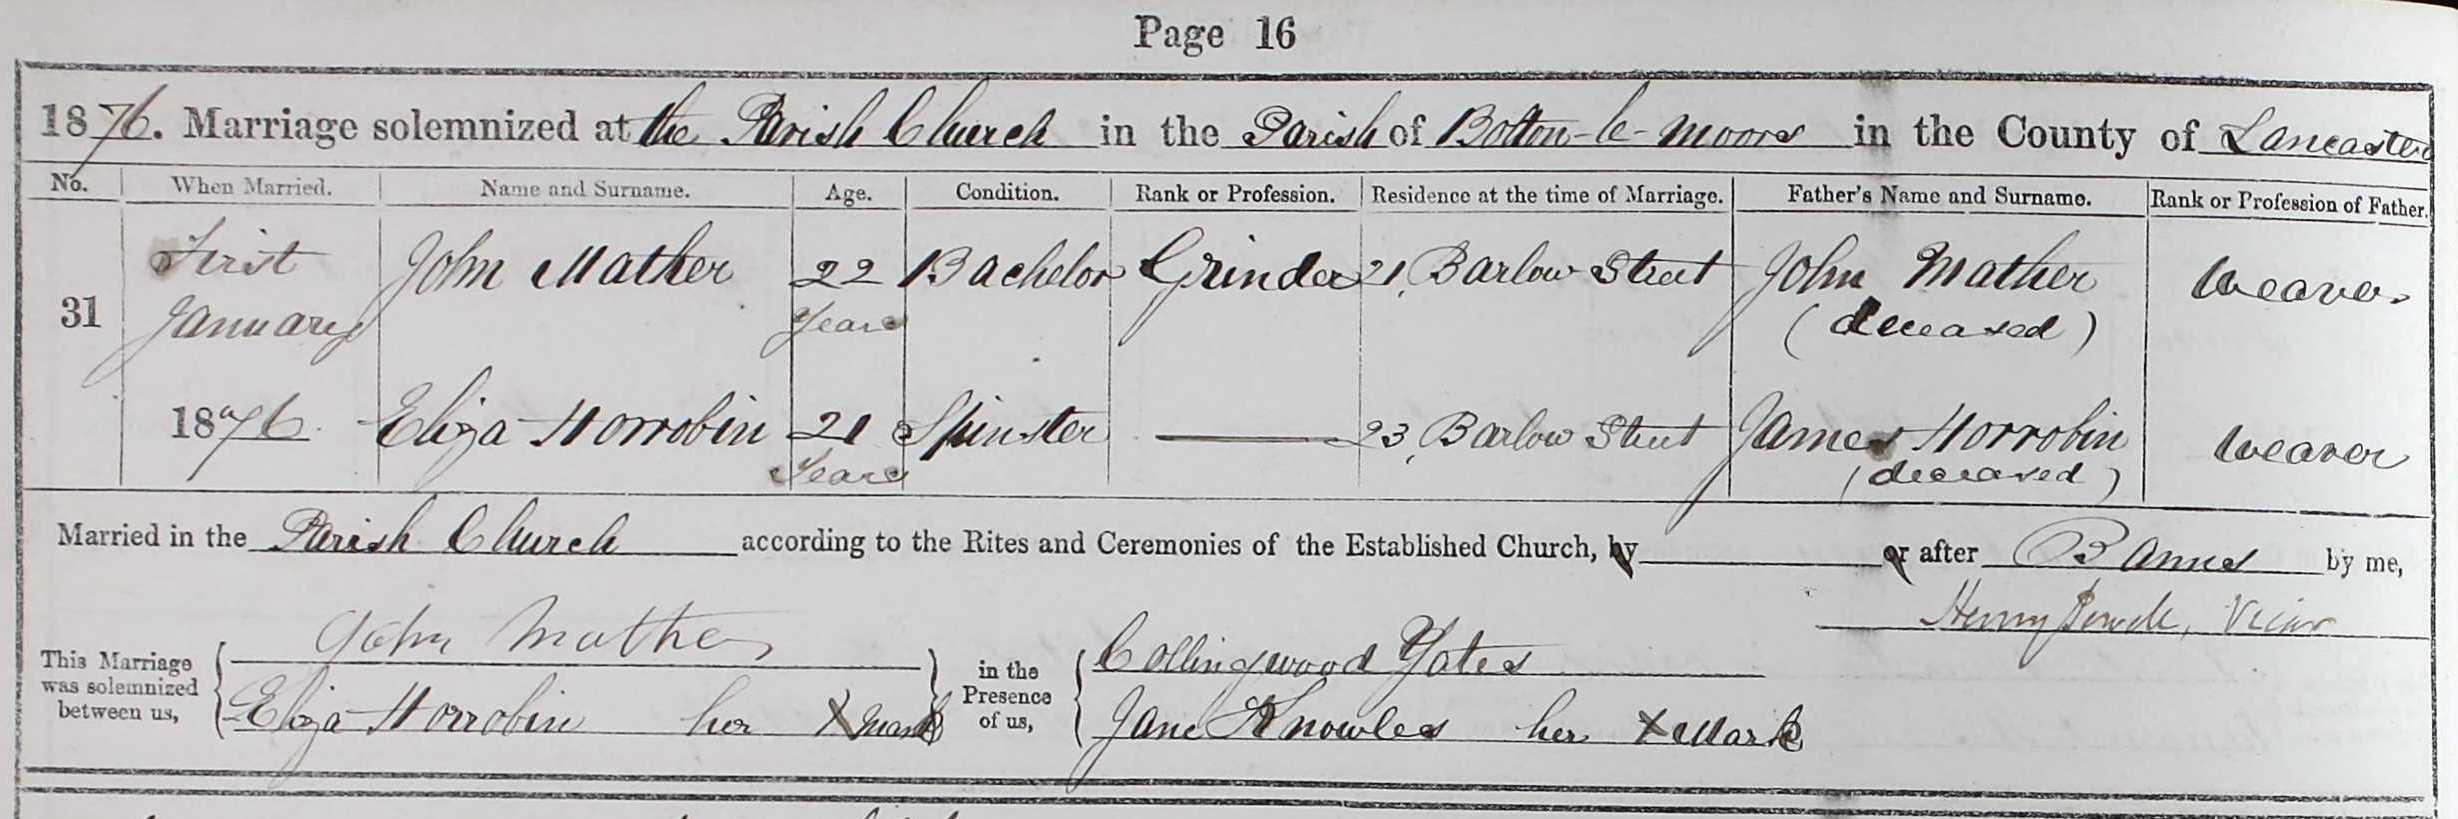 Page 16
1876. Marriage solemnized at the Parish Church in the Parish of Bolton-le-Moors in the County of Lancaster
No. When Married. Name and Surname. Age. Condition. Rank or Profession. Residence at the time of Marriage. Father's Name and Surname. Rank or Profession of Father.
31 First January 1876 John Mather 22 Years Bachelor Grinder 21, Barlow Street John Mather (deceased) Weaver
Eliza Horrobin 21 Years Spinster 23, Barlow Street James Horrobin (deceased) Weaver
Married in the Parish Church according to the Rites and Ceremonies of the Established Church, by or after Banns by me,
Henry Powell, Vicar
This Marriage was solemnized between us, John Mather in the Presence of us, Collingwood Yates
Eliza Horrobin her X Mark Jane Knowles her X Mark